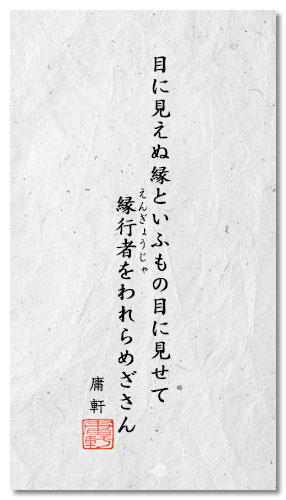 目に見えぬ縁といふもの目に見せて
縁行者をわれらめざさん
えんぎょうじゃ
庸軒
庸軒